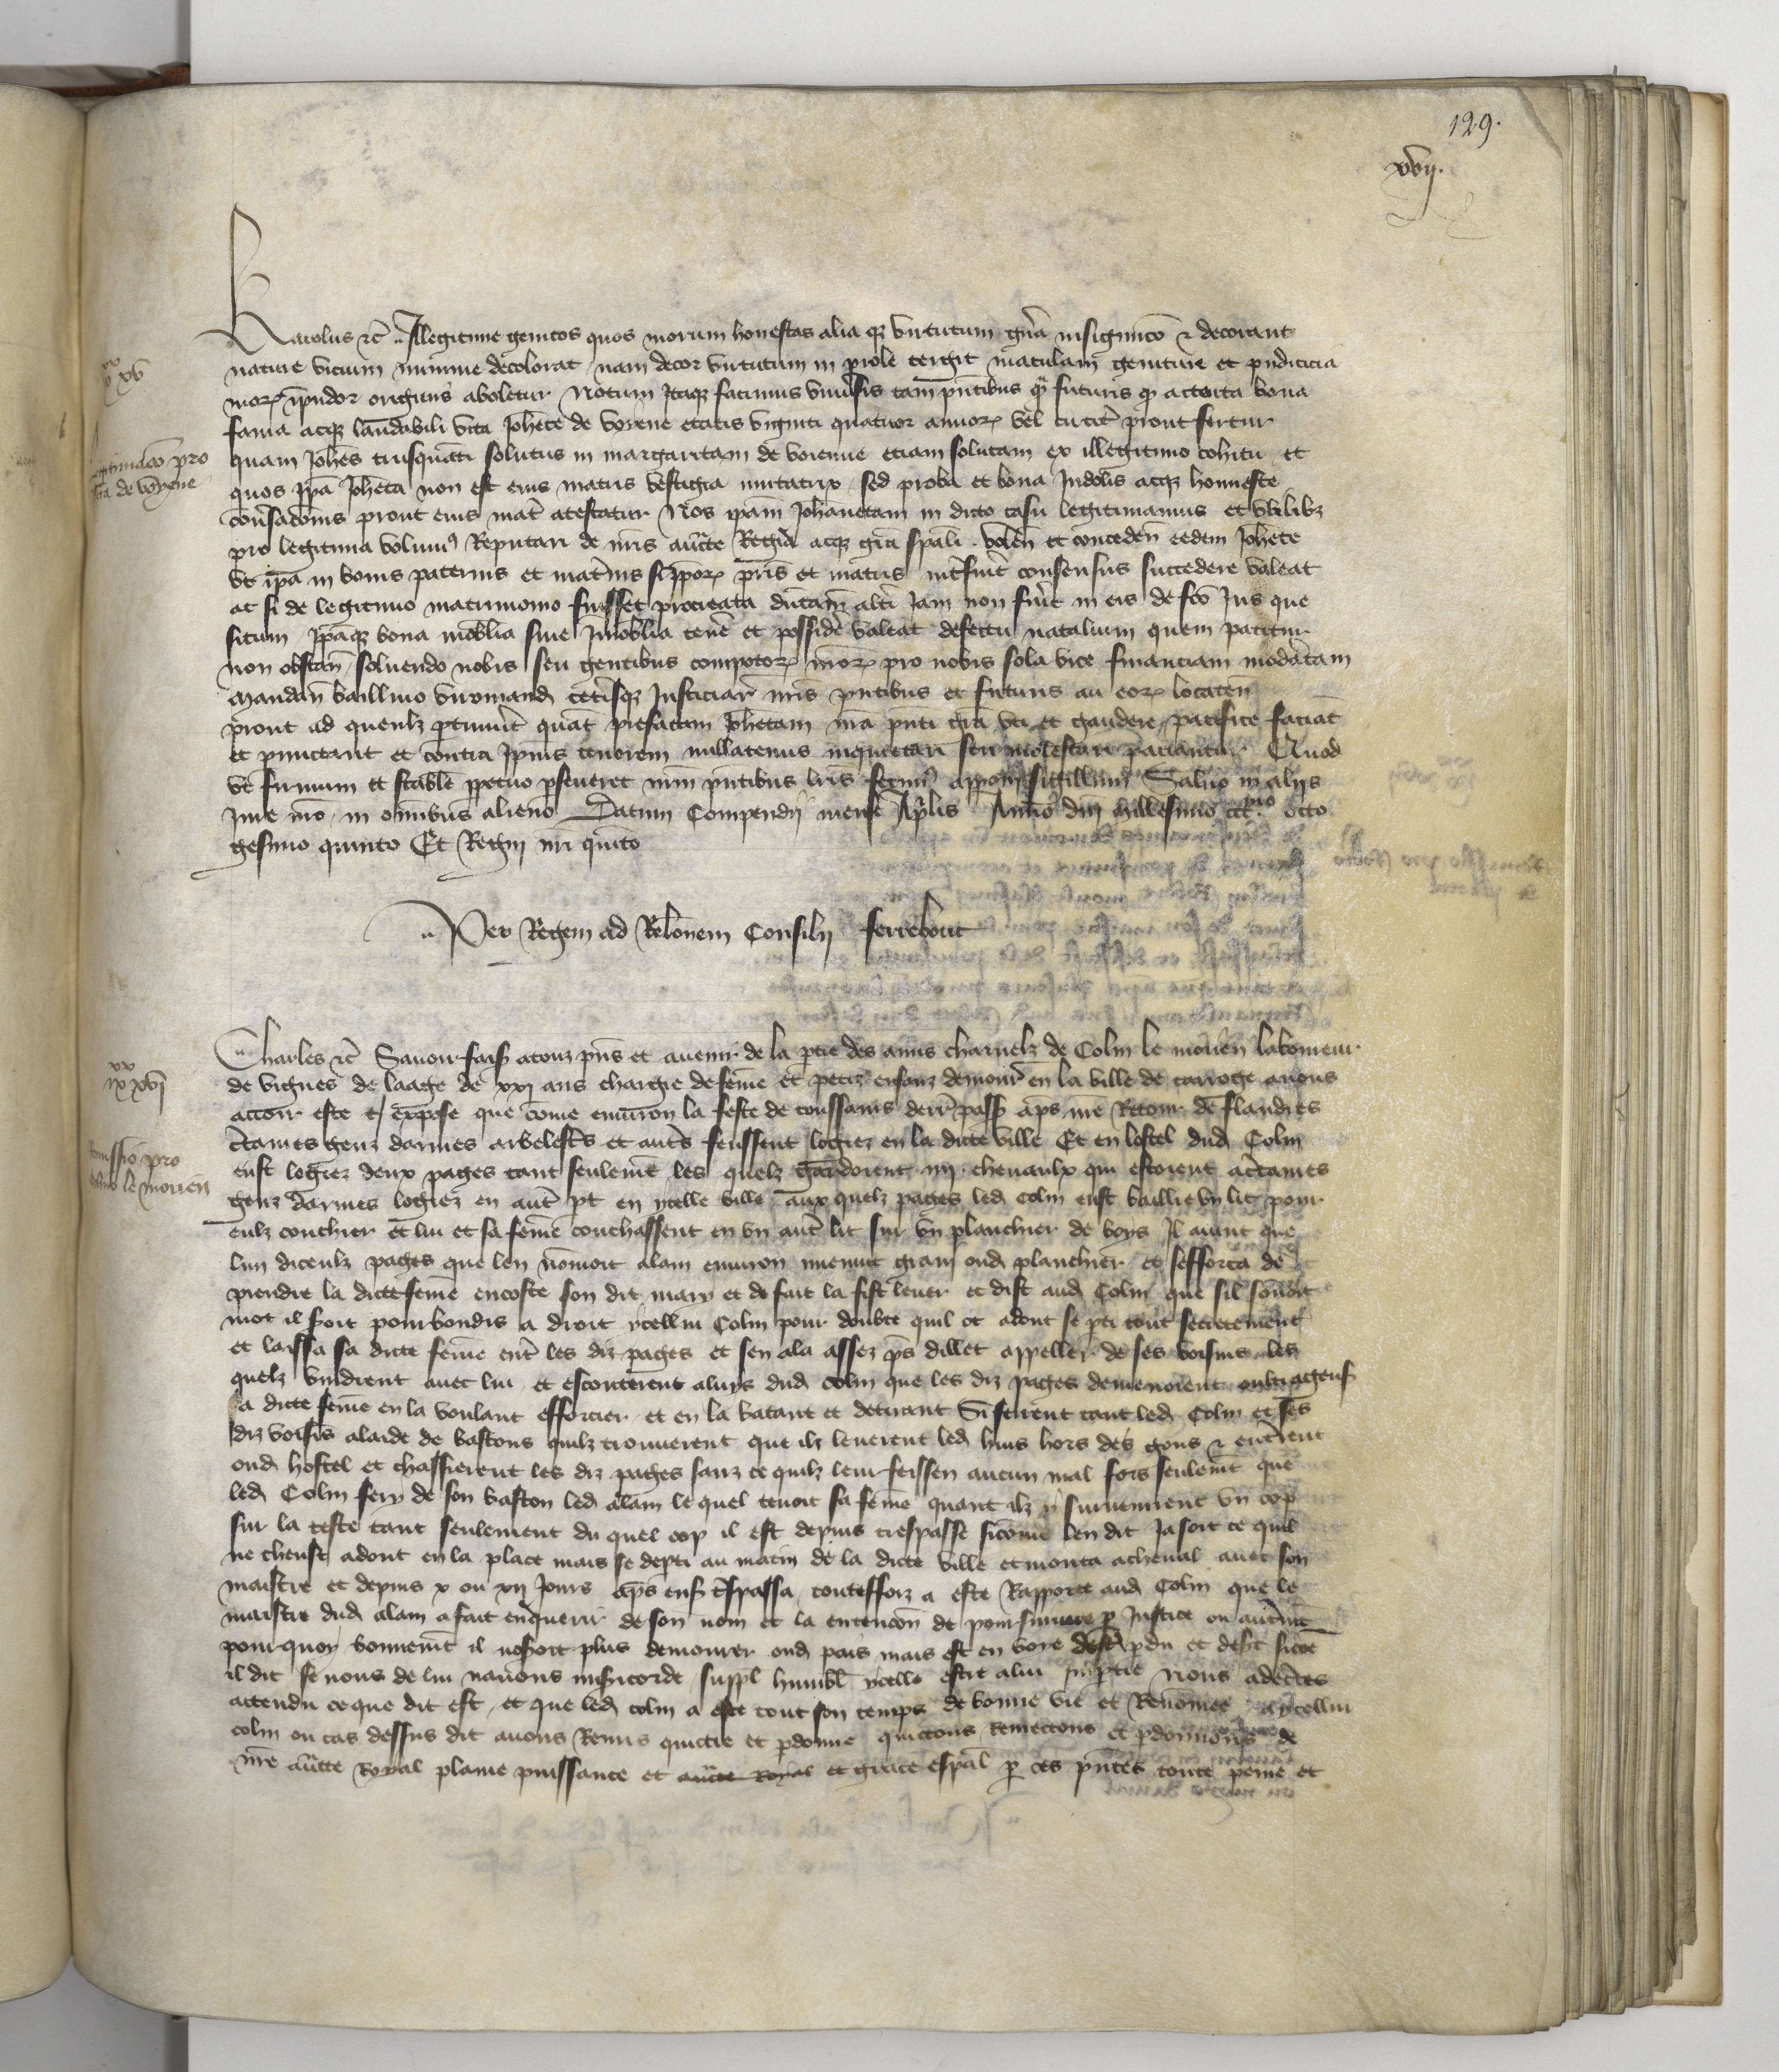 129.
xvij.
Karolus etc̃ Illegitime genitos quos morum honestas alia qz virtutum grã insignitio & decorant
nature vicium minime decolorat nam decor virtutum in prole tergit maculam geniture et pudicicia
morꝝ ĩpudor originis aboletur Notum Itaqz facimus univ̾sis tam pñtibus q̃ futuris q̛ attenta bona
fama acqz laudabili vita Joh̃ete de Voyene etatis viginti quatuor annorꝝ vel circit̾ prout fertur
quam Joh̃es trusquati solutus in margaritam de voienne etiam solutam ex illegitimo cohitu et
quos ip̃a Joh̃eta non est eius matris vestigia imitatrix sed proba et bona Indolis acqz honneste
conv̾sacõnis prout eius mat̾ atestatur Nos ip̃am Joh̃anetam in dicto casu legitimamus et
pro legitima volum9 Reputari de nr̃is auct̃te Regia acqz grã spãli volen̄ et conceden̄ eedem Joh̃ete
ut ip̃a in bonis paternis et mat̾nis si ip̃orꝝ pr̃is et matris int̾fuit consensus succedere valeat
ac si de legitimo matrimonio fuisset procreata dũtam̃ alt̾i Jam non fu̾it in eis de fc̃o Jus que
situm Ip̃aqz bona mobilia sive Immobilia ten̾e et posside̾ valeat defectu natalium quem patitur
non obstan̄ solvendo nobis seu gentibus compotorꝝ nr̃orꝝ pro nobis sola vice financiam moderatam
Mandan̄ baillivo viromand̃ cet̾isqz Justiciar̃ nr̃is pñtibus et futuris aũ eorꝝ locaten̄
prout ad quemlz p̲tinu̾it quat̾ prefatam Joh̃etam nr̃a pñti grã uti et gaudere pacifice faciat
et p̲mictant et contra Ipsius tenorem nullatenus inquietari seu molestari paciantur Quod
ut firmum et stabile p̲petuo p̲severet nr̃m pñtibus lr̃is fecim9 apponi sigillum Salvo in aliis
Jure nr̃o in omnibus alieno Datum Compendii mense Ap̃lis Anno dñi Millesimo ccc.mo octo
gesimo quinto Et Regni nr̃i quinto
Per Regem ad Relõnem Consilii ferrebouc
Charles etc̃ Savoir fais̃ a touz pñs et avenir de la p̲tie des amis charnelz de Colin le moȗen laboureur
de vignes de laage de xxi ans chargie de fem̃e et petiz enfanz demour̃ en la ville de Carroge avons
nous este exposé que com̃e environ la feste de toussains derr̃ pass̃ ap̃s nr̃e Retour de flandres
c̾taines genz darmes arbelest̾s et aut̾s feussent logiez en la dicte ville Et en lostel dud̃ Colin
eust logiez deux pages tant seulem̃t les quelz gardoient iiij chevaulx qui estoient a c̾taines
genz darmes logiez en aut̾ p̲t en ycelle ville aux quelz pages led̃ Colin eust baillie un lit pour
eulz couchier et lui et sa fem̃e couchassent en un aut̾ lit sur un planchier de boys Il avint que
lun diceulz pages que len nom̃oit alain environ mienuit ou dit planchier et sefforca de
prendre la dicte fem̃e encoste son dit mary et de fait la fist lever et dist aud̃ Colin que sil sonoit
mot il soit pourbondis a droit ycellui Colin pour doubte quil ot adont se p̲ti tout secretement
et laissa sa dicte fem̃e ent̾ les diz pages et sen ala assez p̾s dillec appeller de ses voisins les
quelz vindrent avec lui et escouterent aluys dud̃ Colin que les diz pages demenoient oultrageus̃
sa dicte fem̃e en la voulant efforcier et en la batant et detirant Si firent tant led̃ Colin et ses
diz voisins alaide de bastons quilz trouverent que ilz leverent led̃ huis hors des gons & ent̾rent
oud̃ hostel et chassierent les diz pages sanz ce quilz leur feissen aucun mal fors seulem̃t que
led̃ Colin fery de son baston led̃ alain le quel tenoit sa fem̃e quant ilz y survenirent un cop
sur la teste tant seulement du quel cop il est depuis trespasse sicom̃e len dit Ja soit ce quil
ne cheust adont en la place mais se dep̲ti au matin de la dicte ville et monta acheval avec son
maistre et depuis x ou xij Jours ap̃s ens̃ t̾spassa toutesfoiz a este Rapporte aud̃ Colin que le
maistre dud̃ alain a fait enquerir de son nom et la entencõn de poursuivre p̲ Justice ou aut̾m̃t
pour quoy bonnem̃t il noseroit plus demourer oud̃ pais mais est en voye dest̾ p̲du et desert sicõe
il dit se nous de lui navons mis̾icorde suppl̃ humbl̃ ycelle estre a lui imp̲tie Nous adec̾tes
attendu ce que dit est et que led̃ colin a este tout son temps de bonne vie et Renom̃ee aycellui
colin ou cas dessus dit avons Remis quictie et p̲donne quictons Remectons et p̲donnons de
nr̃e auct̃te Royal plaine puissance et auct̃te Royal et grace esp̃al p̲ ces pñtes toute peine et
xx
v xv
legitimacõ pro
Joh̃eta de Voyene
xx
ix xvi
Remissio pro
Colino le moȗen